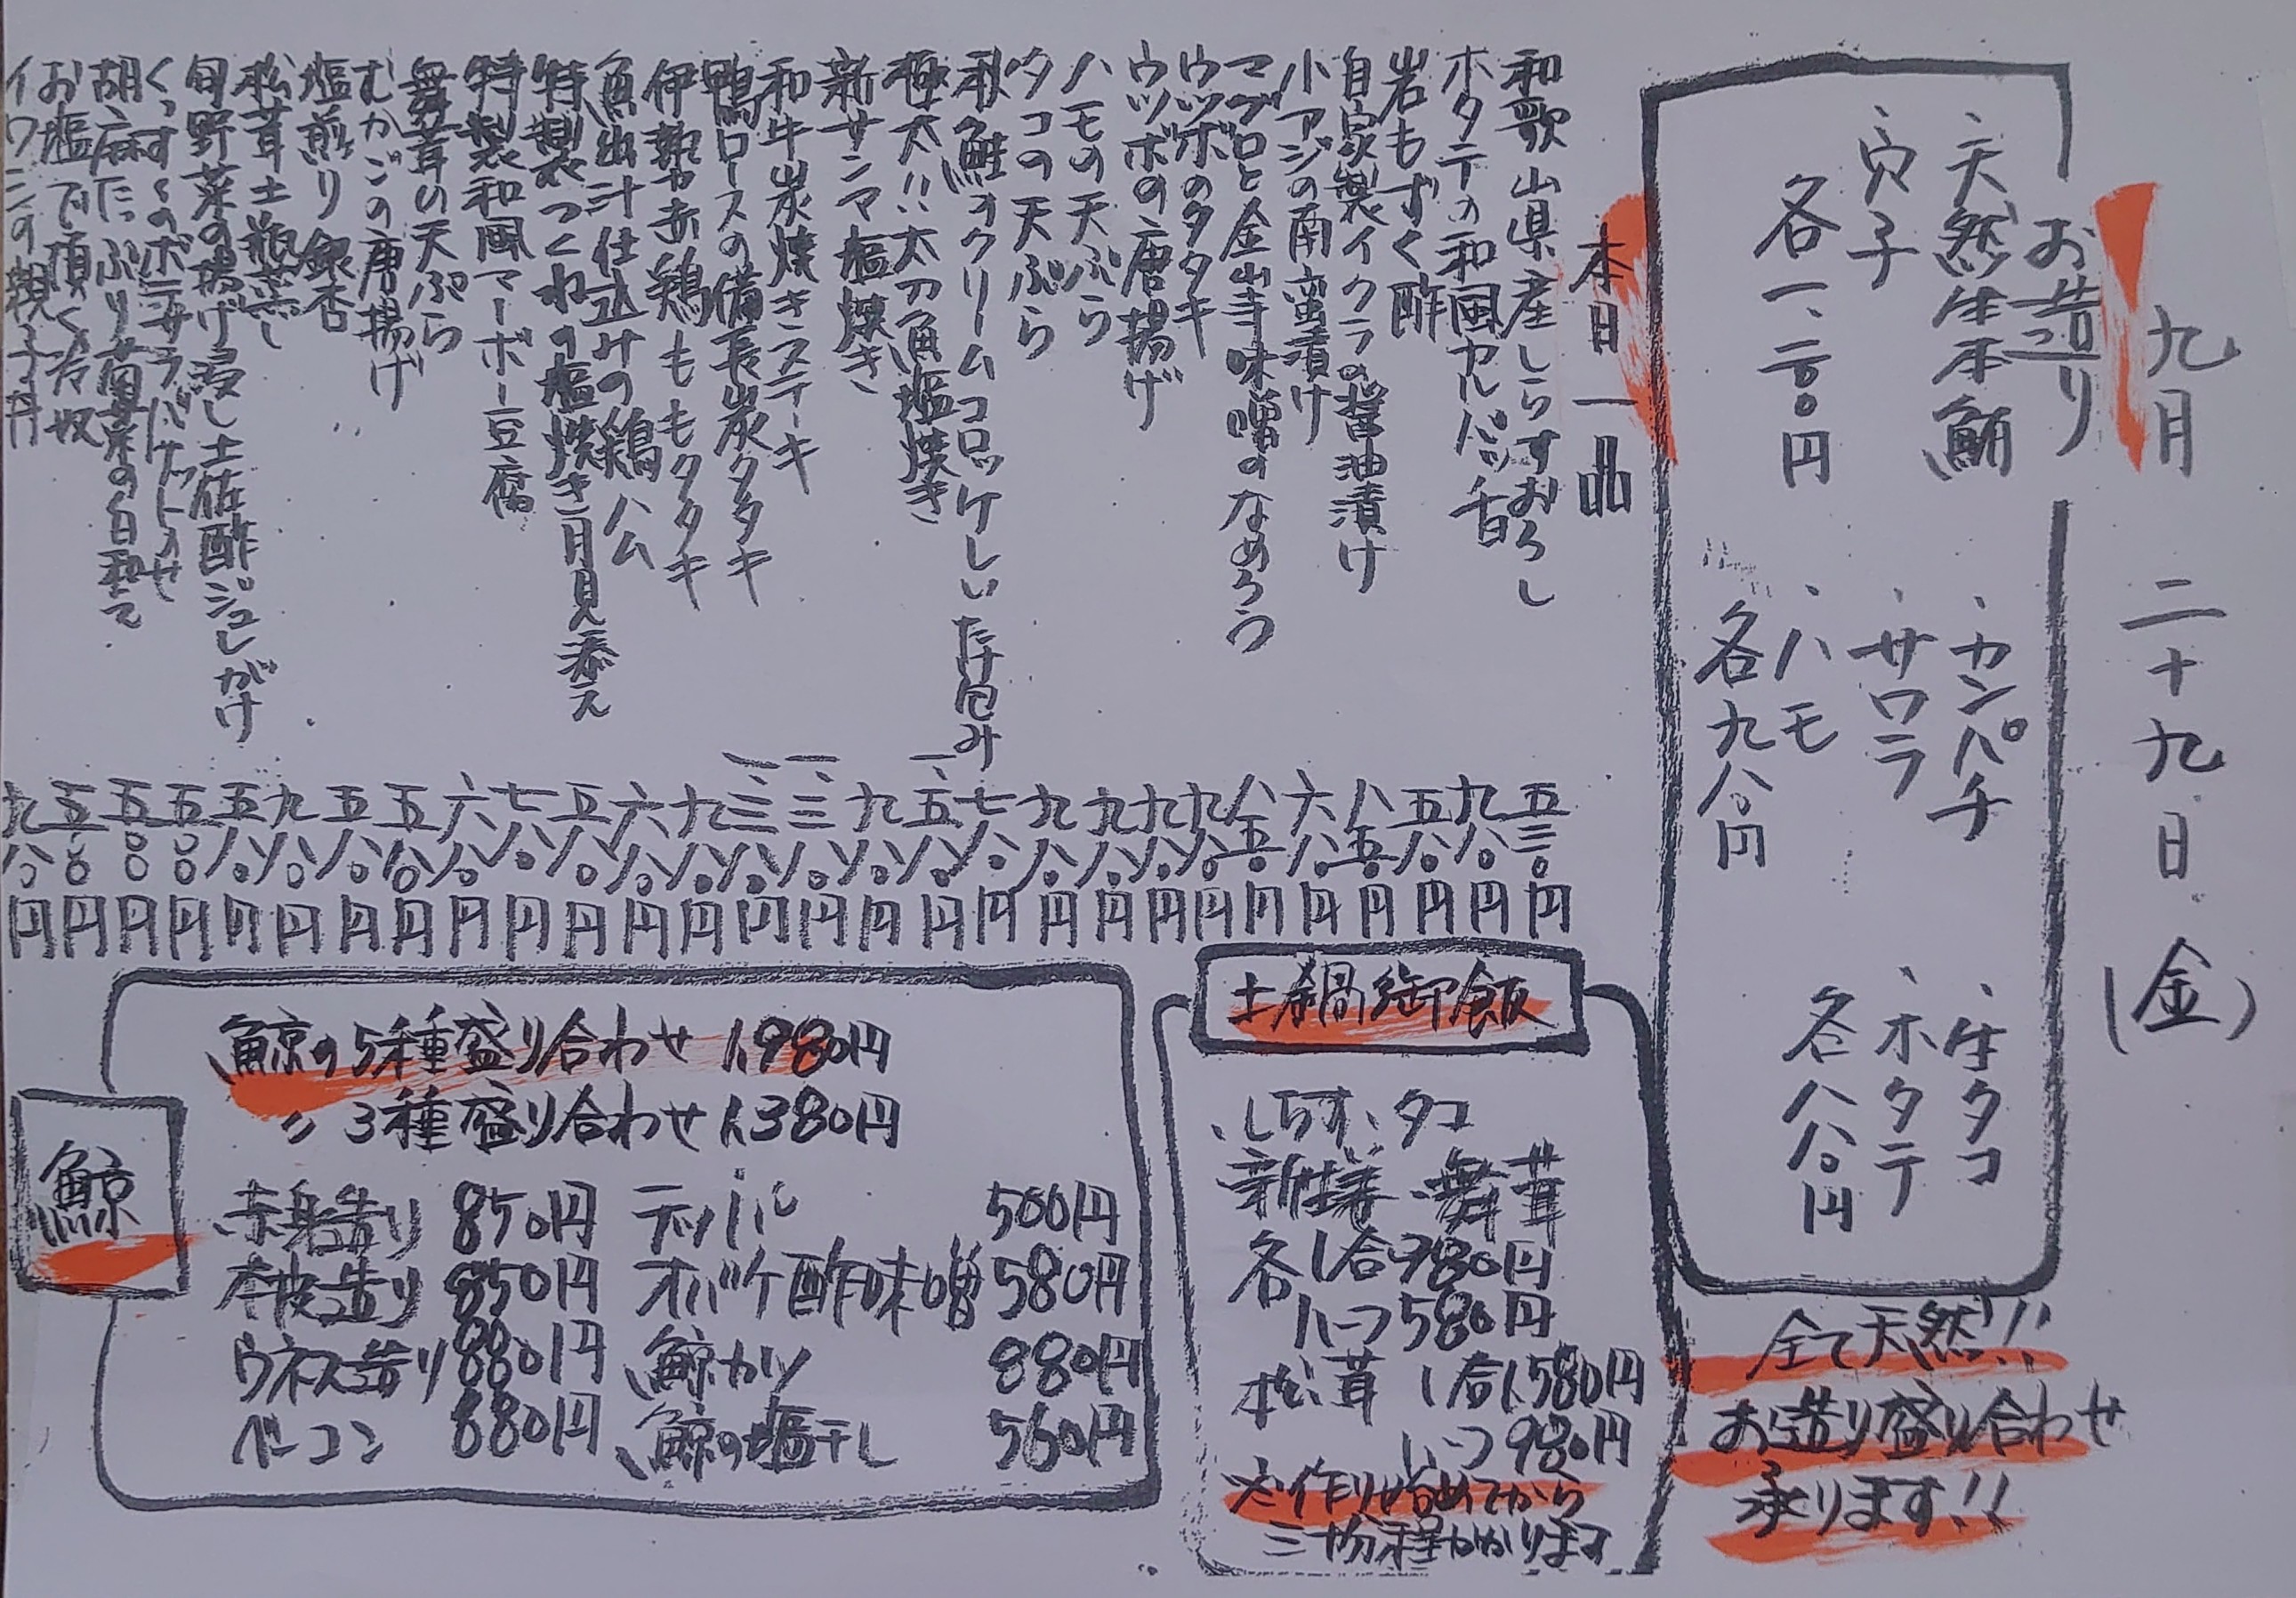 九月 二十九日(金)
お造り
、天然生本鮪
、穴子
各一、二八〇円
、カンパチ
、サワラ
、ハモ
各九八〇円
、生タコ
、ホタテ
各八八〇円
全て天然!!
お造り盛り合わせ
承ります!!
本日一品
和歌山県産しらすおろし 五三〇円
ホタテの和風カルパッチョ 九八〇円
岩もずく酢 五八〇円
自家製イクラの醤油漬け 八五〇円
小アジの南蛮漬け 六八〇円
マグロと金山寺味噌のなめろう 八五〇円
ウツボのタタキ 九八〇円
ウツボの唐揚げ 九八〇円
ハモの天ぷら 九八〇円
タコの天ぷら 九八〇円
秋鮭のクリームコロッケしいたけ包み 七八〇円
極太!!太刀魚塩焼き 一、五八〇円
新サンマ塩焼き 九八〇円
和牛炭焼きステーキ 二、三八〇円
鴨ロースの備長炭タタキ 一、三八〇円
伊勢赤鶏ももタタキ 九八〇円
魚出汁仕込みの鶏ハム 六八〇円
特製つくねの塩焼き月見添え 五八〇円
特製和風マーボー豆腐 七八〇円
舞茸の天ぷら 六八〇円
むかごの唐揚げ 五八〇円
塩煎り銀杏 五八〇円
松茸土瓶蒸し 九八〇円
旬野菜の揚げ浸し土佐酢ジュレがけ 五八〇円
くっす〜のポテサラバゲットのせ 五五〇円
胡麻たっぷり菊菜の白和て 五〇〇円
お塩で頂く冷奴 五〇〇円
イワシの親子丼 九八〇円
土鍋御飯
、しらす、タコ
新生姜、舞茸
各1合980円
ハーフ580円
松茸 1合1,580円
ハーフ980円
※作り始めてから
三十分程かかります
鯨
鯨の5種盛り合わせ 1,980円
〃 3種盛り合わせ 1,380円
赤身造り 850円
本皮造り 850円
ウネス造り 880円
ベーコン 880円
テッパ 500円
オバケ酢味噌 580円
鯨カツ 880円
鯨の塩干し 560円